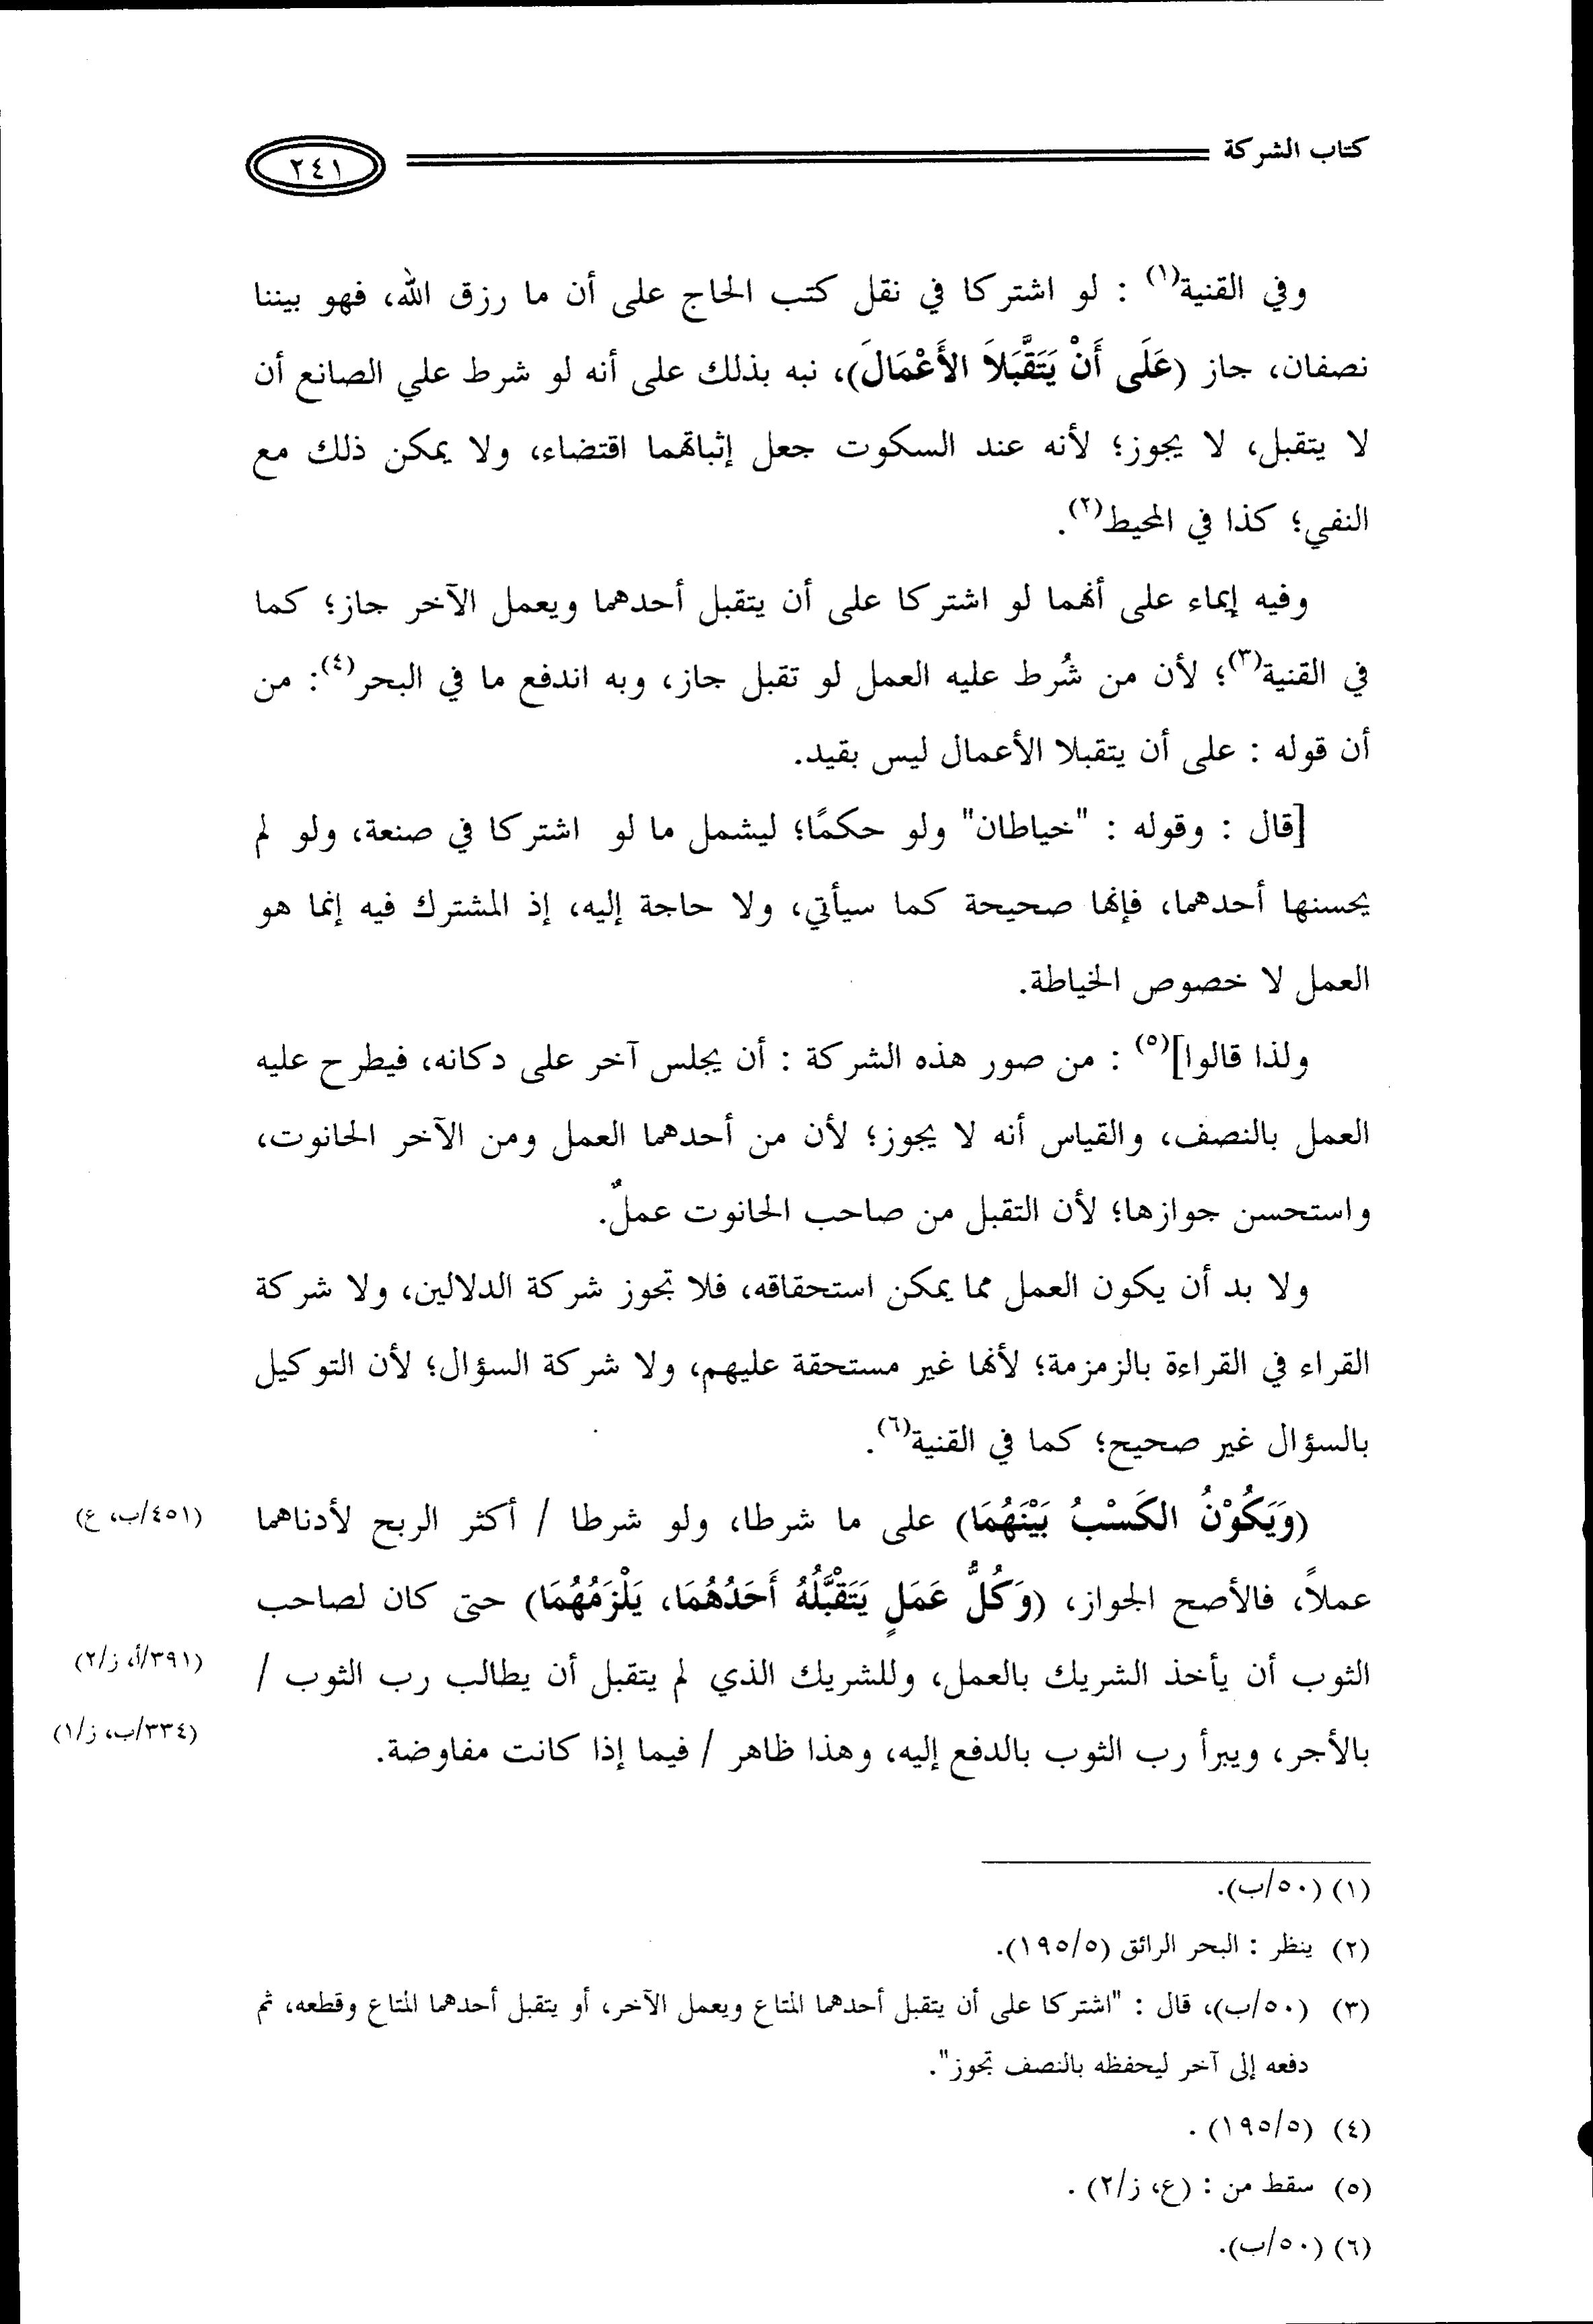 كتاب الشركة
٢٤١
وفي القنية(١) : لو اشتركا في نقل كتب الحاج على أن ما رزق الله، فهو بيننا
نصفان، جاز (عَلَى أَنْ يَتَقَّبَلاَ الأَعْمَالَ)، نبه بذلك على أنه لو شرط علي الصانع أن
لا يتقبل، لا يجوز؛ لأنه عند السكوت جعل إثباتهما اقتضاء، ولا يمكن ذلك مع
النفي؛ كذا في المحيط(٢).
وفيه إيماء على أنهما لو اشتركا على أن يتقبل أحدهما ويعمل الآخر جاز؛ كما
في القنية(٣)؛ لأن من شُرط عليه العمل لو تقبل جاز، وبه اندفع ما في البحر(٤): من
أن قوله : على أن يتقبلا الأعمال ليس بقيد.
[قال : وقوله : "خياطان" ولو حكمًا؛ ليشمل ما لو اشتركا في صنعة، ولو لم
يحسنها أحدهما، فإنها صحيحة كما سيأتي، ولا حاجة إليه، إذ المشترك فيه إنما هو
العمل لا خصوص الخياطة.
ولذا قالوا](٥) : من صور هذه الشركة : أن يجلس آخر على دكانه، فيطرح عليه
العمل بالنصف، والقياس أنه لا يجوز؛ لأن من أحدهما العمل ومن الآخر الحانوت،
واستحسن جوازها؛ لأن التقبل من صاحب الحانوت عملٌ.
ولا بد أن يكون العمل مما يمكن استحقاقه، فلا تجوز شركة الدلالين، ولا شركة
القراء في القراءة بالزمزمة؛ لأنها غير مستحقة عليهم، ولا شركة السؤال؛ لأن التوكيل
بالسؤال غير صحيح؛ كما في القنية(٦).
(وَيَكُوْنُ الكَسْبُ بَيْنَهُمَا) على ما شرطا، ولو شرطا / أكثر الربح لأدناهما
(٤٥١/ب، ع)
عملاً، فالأصح الجواز، (وَكُلُّ عَمَلٍ يَتَقْبَّلُهُ أَحَدُهُمَا، يَلْزَمُهُمَا) حتى كان لصاحب
الثوب أن يأخذ الشريك بالعمل، وللشريك الذي لم يتقبل أن يطالب رب الثوب /
(٣٩١/أ، ز/٢)
بالأجر، ويبرأ رب الثوب بالدفع إليه، وهذا ظاهر / فيما إذا كانت مفاوضة.
(٣٣٤/ب، ز/١)
(١) (٥٠/ب).
(٢) ينظر : البحر الرائق (١٩٥/٥).
(٣) (٥٠/ب)، قال : "اشتركا على أن يتقبل أحدهما المتاع ويعمل الآخر، أو يتقبل أحدهما المتاع وقطعه، ثم
دفعه إلى آخر ليحفظه بالنصف تجوز".
(٤) (١٩٥/٥) .
(٥) سقط من : (ع، ز/٢) .
(٦) (٥٠/ب).